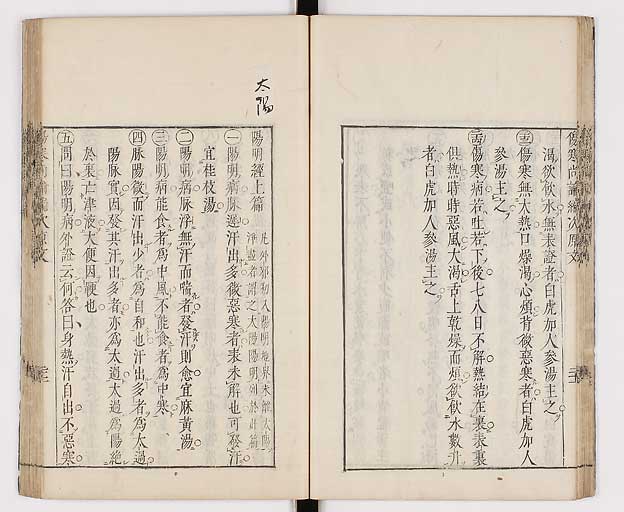 渴欲飲水無表證者白虎加人參湯主之
傷寒無大熱口燥渴心煩背微惡寒者白虎加人
參湯主之
傷寒病若吐若下後七八日不解熱結在裏表裏
俱熱時時惡風大渴舌上乾燥而煩欲飲水數升
者白虎加人參湯主之
太陽
陽明經上篇
凡外邪初入陽明地界未離太陽
淨盡者謂之太陽陽明列於此篇
一 陽明病脉遲汗出多微惡寒者表未解也可發汗
宜桂枝湯
二 陽明病脉浮無汗而喘者發汗則愈宜麻黃湯
三 陽明病能食者為中風不能食者為中寒
四 脉陽微而汗出少者為自和也汗出多者為太過
陽脉實因發其汗出多者亦為太過太過為陽絕
於裏亡津液大便因鞕也
五 問曰陽明病外證云何答曰身熱汗自出不惡寒